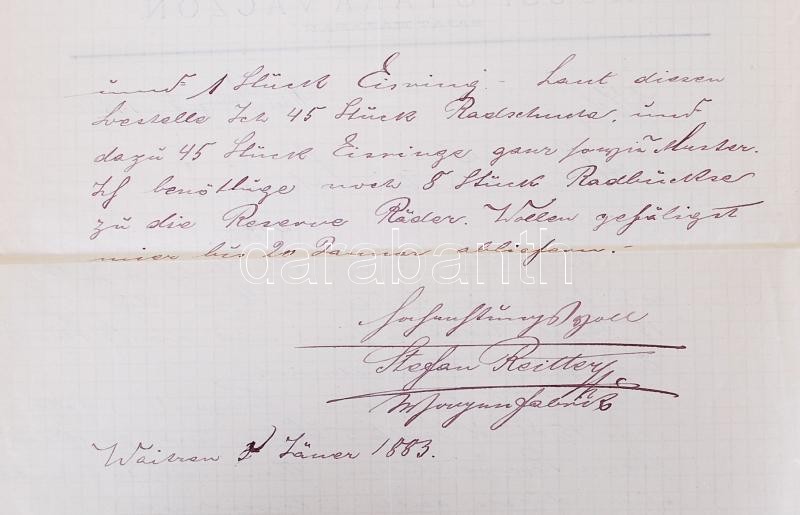 und 1 Stück Eisring. – Laut diesen
bestelle Ich 45 Stück Radschuhe, und
dazu 45 Stück Eisringe ganz Muster.
Ich benöthige noch 8 Stück Radbückse
zu die Reserve Räder. Wollen gefäligst
mier bis 20 Januar abliefern. –
Hochachtungsvoll
Stefan Reitter
Waitzen Jäner 1883.
darabanth